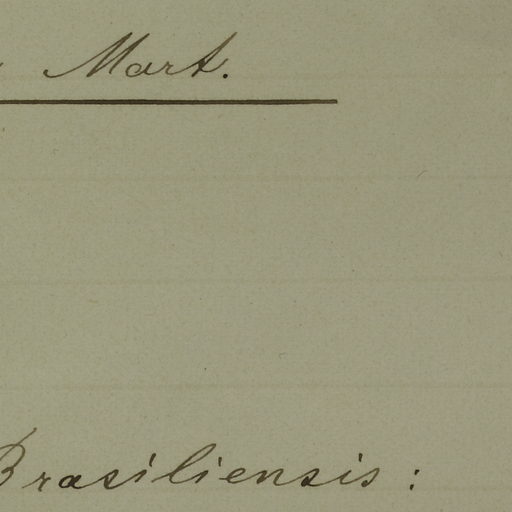 Mart.
Brasiliensis: